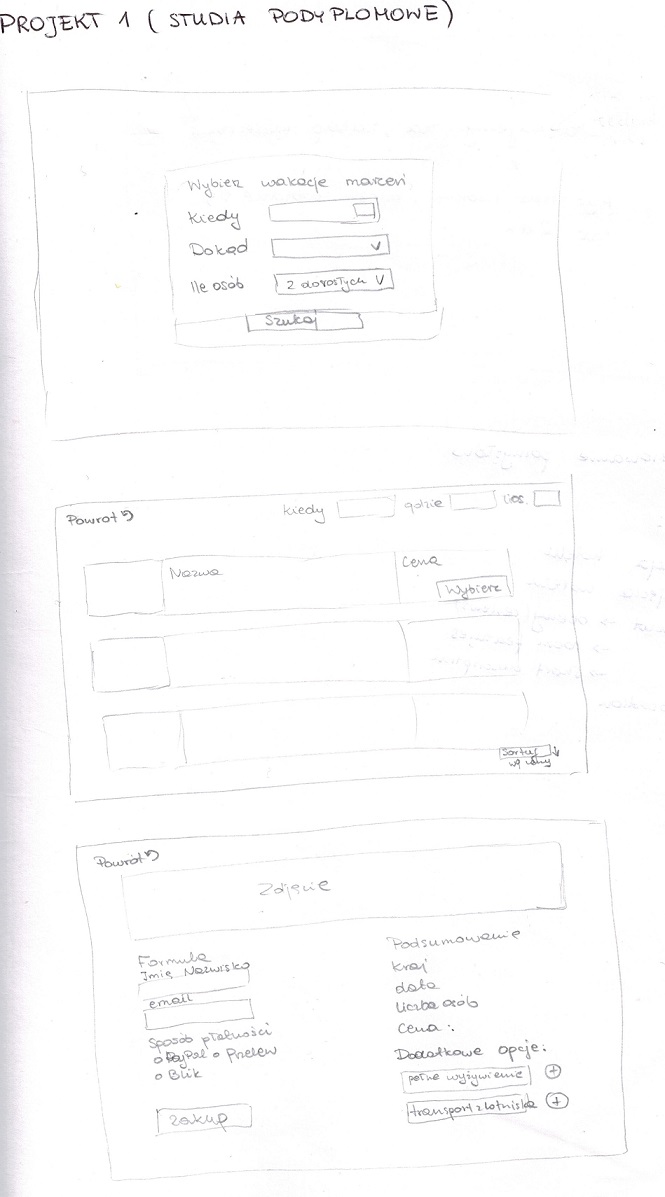 PROJEKT 1 (STUDIA PODYPLOMOWE)
Wybierz wakacje marzeń
Kiedy
Dokąd
Ile osób 2 dorosłych V
Szukaj
Powrót
kiedy gdzie
Nazwa Cena
Wybierz
Sortuj
wg
Powrót
Zdjęcie
Formula
Imię Nazwisko
email
Sposób płatności
o PayPal o Przelew
o Blik
zakup
Podsumowanie
kraj
data
liczba osób
cena :
Dodatkowe opcje:
pełne wyżywienie +
transport z lotniska +